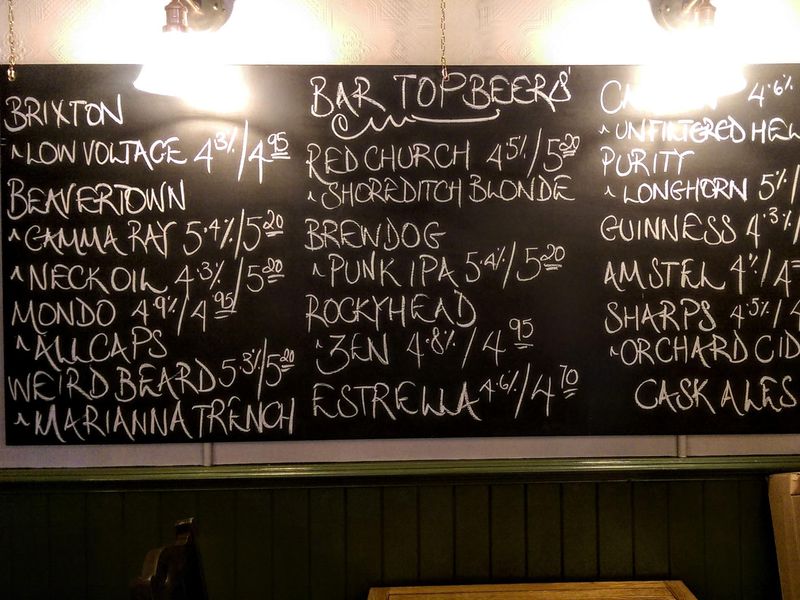 BAR TOP BEERS
BRIXTON
^LOW VOLTAGE 4.3%/4.95
BEAVERTOWN
^GAMMA RAY 5.4%/5.20
^NECK OIL 4.3%/5.20
MONDO 4.9%/4.95
^ALL CAPS
WEIRD BEARD 5.3%/5.20
^MARIANNA TRENCH
RED CHURCH 4.5%/5.20
^SHOREDITCH BLONDE
BREWDOG
^PUNK IPA 5.4%/5.20
ROCKYHEAD
^ZEN 4.8%/4.95
ESTRELLA 4.6%/4.70
4.6%
^UNFILTERED HEL
PURITY
^LONGHORN 5%/
GUINNESS 4.3%
AMSTEL 4%/4
SHARPS 4.5%/4
^ORCHARD CID
CASK ALES